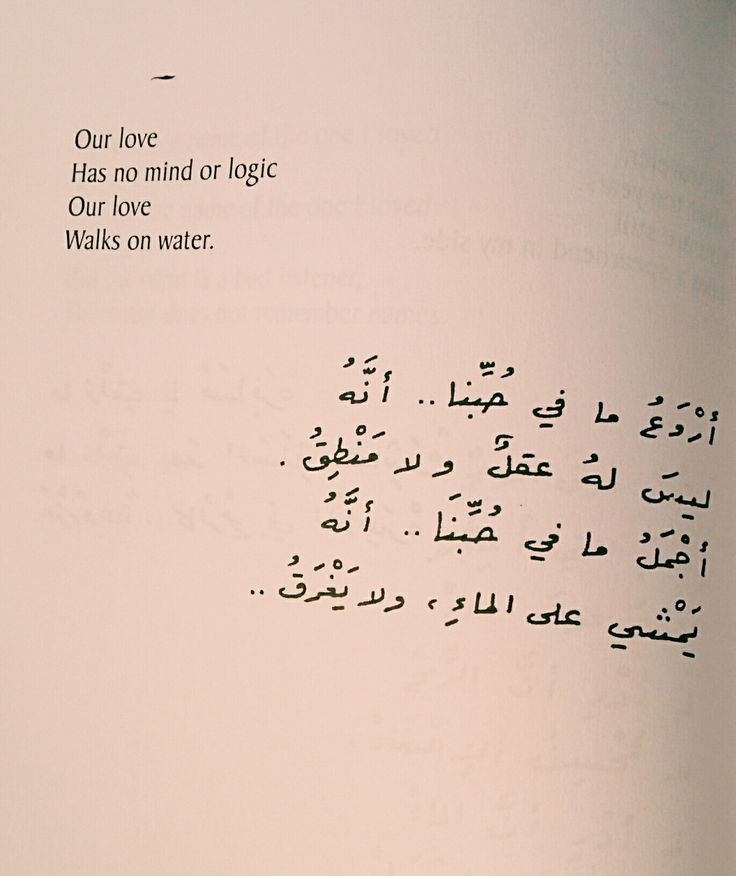 Our love
Has no mind or logic
Our love
Walks on water.
أَرْوَعُ ما في حُبِّنا .. أنَّهُ
ليسَ لهُ عقلٌ ولا مَنْطِقُ .
أجْمَلُ ما في حُبِّنَا .. أنَّهُ
يَمْشي على الماءِ ، ولا يَغْرَقُ ..